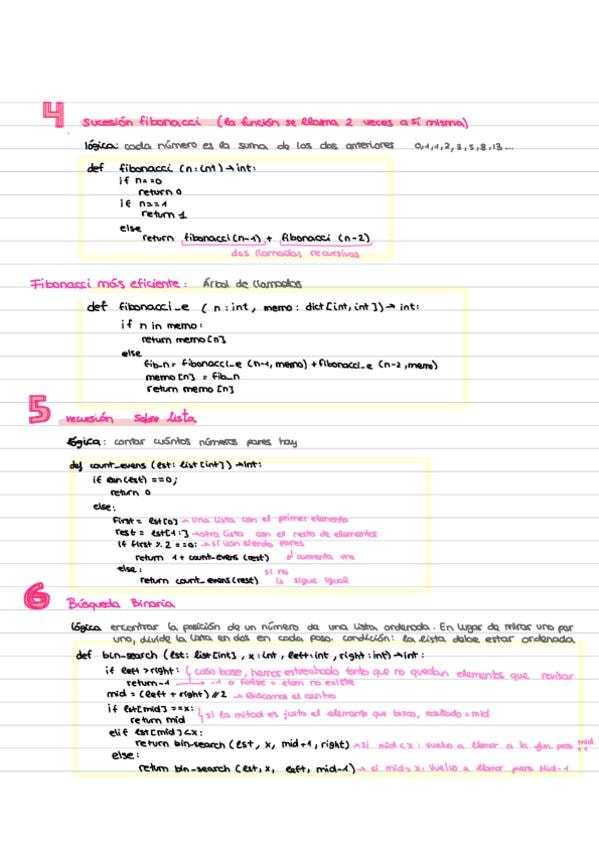 4 sucesión fibonacci (la función se llama 2 veces a sí misma)
lógica: cada número es la suma de los dos anteriores 0,1,1,2,3,5,8,13...
def fibonacci (n:int)→int:
if n==0
return 0
if n==1
return 1
else
return fibonacci(n-1) + fibonacci (n-2)
dos llamadas recursivas
Fibonacci más eficiente: Árbol de llamadas
def fibonacci_e ( n:int, memo: dict[int, int])→ int:
if n in memo:
return memo[n]
else
fib_n= fibonacci_e (n-1, memo) + fibonacci_e (n-2, memo)
memo [n] = fib_n
return memo [n]
5 recursión sobre lista
lógica: contar cuántos números pares hay
def count_evens (lst: list[int]) →int:
if len(lst) ==0;
return 0
else:
first= lst[0] →una lista con el primer elemento
rest = lst[1:] →otra lista con el resto de elementos
if first % 2 ==0: →si van siendo pares
return 1+ count_evens (rest) el aumenta uno
else: si no
return count_evens(rest) lo sigue igual
6 Búsqueda Binaria
lógica encontrar la posición de un número de una lista ordenada. En lugar de mirar uno por
uno, divide la lista en dos en cada paso. condición: la lista debe estar ordenada
def bin_search (lst: list[int], x:int, left:int, right:int)→int:
if left >right: caso base, hemos estrechado tanto que no quedan elementos que revisar
return-1 → -1 o False = elem no existe
mid = (left + right) // 2 → Buscamos el centro
if lst[mid] ==x: si la mitad es justo el elemento que busco, resultado=mid
return mid
elif lst[mid]<x:
return bin_search (lst, x, mid+1, right) →si mid<x: vuelvo a llamar a la fun. para mid+1
else:
return bin_search (lst, x, left, mid-1) → si mid> x: vuelvo a llamar para mid-1